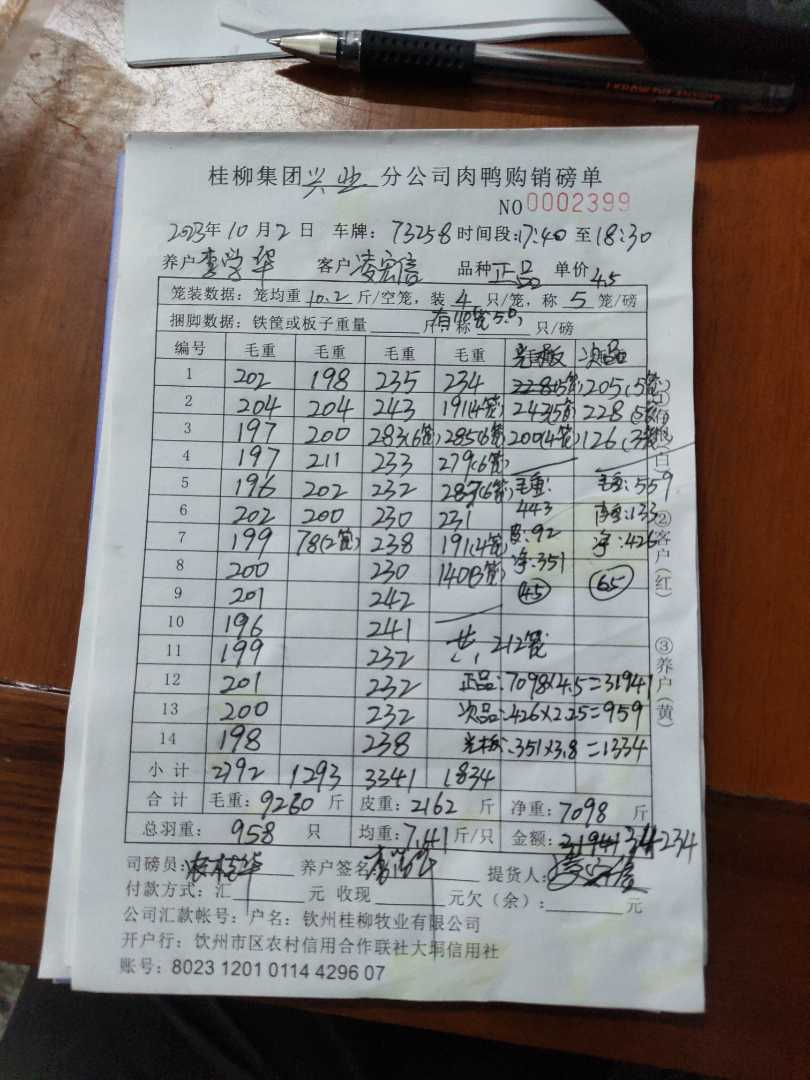 桂柳集团兴业分公司肉鸭购销磅单
NO 0002399
2023年10月2日 车牌:73258 时间段:17:40至18:30
养户李学华 客户凌宏信 品种正品 单价4.5
笼装数据:笼均重10.2斤/空笼,装4只/笼,称5笼/磅
捆脚数据:铁筐或板子重量____斤 称____只/磅
编号 毛重 毛重 毛重 毛重 光板 次品
1 202 198 235 234 228(5笼) 205(5笼)
2 204 204 243 191(4笼) 243(5笼) 228(5笼)
3 197 200 283(6笼) 285(6笼) 200(4笼) 126(3笼)
4 197 211 233 279(6笼)
5 196 202 232 287(6笼) 毛重: 毛重:559
6 202 200 230 231 443 皮重:133
7 199 78(2笼) 238 191(4笼) 皮:92 净:426
8 200 230 140(3笼) 净:351
9 201 242 45 65
10 196 241
11 199 232 共:212笼
12 201 232 正品:7098×4.5=31941
13 200 232 次品:426×2.25=959
14 198 238 光板:351×3.8=1334
小计 2792 1293 3341 1834
合计 毛重:9260斤 皮重:2162斤 净重:7098斤
总羽重:958只 均重:7.41斤/只 金额:31941 34234
司磅员: 养户签名 提货人:
付款方式:汇____元 收现____元欠(余):____元
公司汇款帐号:户名:钦州桂柳牧业有限公司
开户行:饮州市区农村信用合作联社大垌信用社
账号:8023 1201 0114 4296 07
②客户(红)
③养户(黄)